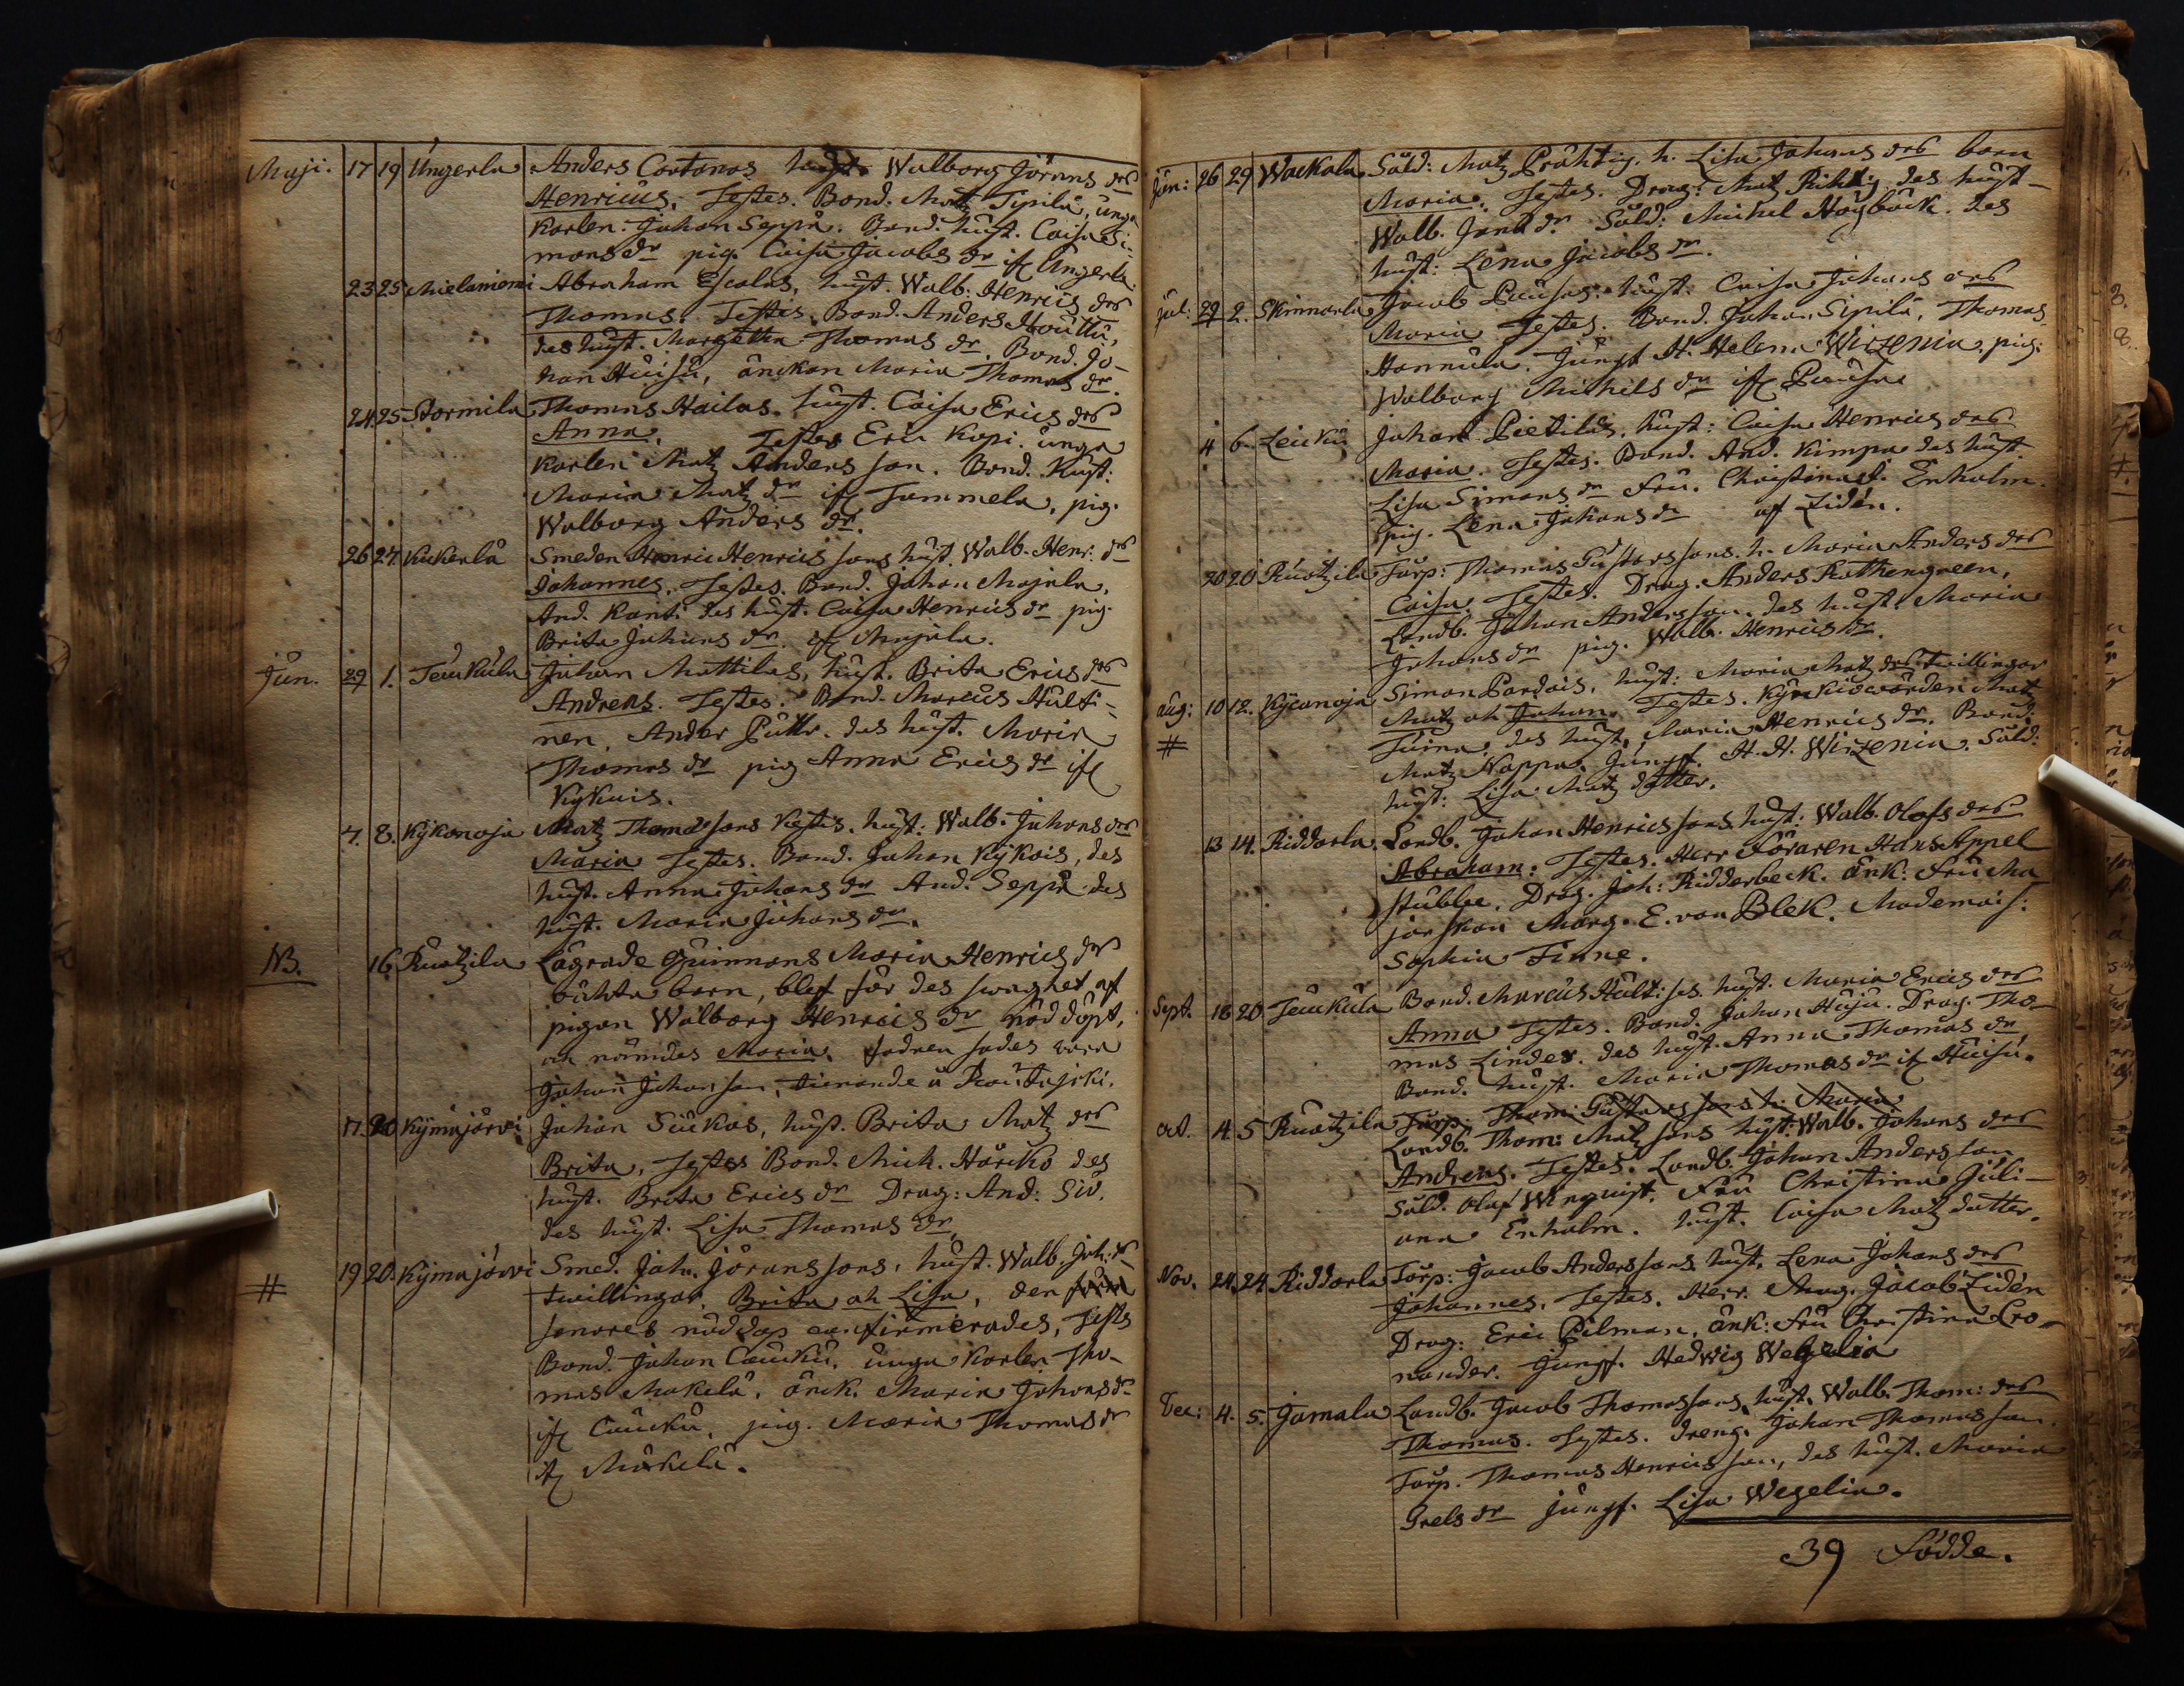 Maji. 17 19 Ungerla Anders Cortonos hust. Walborg Jörans dr
Henricus. Testes. Bond. Matts Sipilä, unga
Karlen: Johan Seppä. Bond. hust. Caisa Si-
mons dr pig. Caisa Jacobs dr if Ungerla.
23 25 Mielaniemi Abraham Escolas, hust. Walb. Henrics dr
Thomas. Testes. Bond. Anders
des hust. Margetha Thomas dr. Bond. Jo-
han Huisu, änckan Maria Thomas dr.
24 25 Stormila Thomas Hailas. hust. Caisa Erics dr
Anna. Testes Eric Kopi. unga
Karlen Matz Anders son. Bond. hust:
Maria Matz dr if Sammela, pig.
Walborg Anders dr.
26 27 Kukerla Smeden Henric Henrics sons hust. Walb. Henr. dr
Johannes. Testes. Bond. Johan Majala,
And. Kont. des hust. Caisa Henrics dr pig.
Brita Johans dr. if Majala.
Jun. 29 1. Teukula Johan Mattilas, hust. Brita Erics dr
Andreas. Testes. Bond. Marcus Hulti-
nen, Ander des hust. Maria
Thomas dr pig Anna Erics dr if
Kykuis.
7. 8. Kykonoja Matz Thomas sons Kestis. hust: Walb. Johans dr
Maria Testes. Bond. Johan Kykois, des
hust. Anna Johans dr And. Seppä. des
hust. Maria Johans dr.
NB. 16. Ruotzila Lägrade Quinnans Maria Henrics dr
oächta barn, blef för des swaghet af
pigan Walborg Henrics dr nöddöpt,
och nämdes Maria. fadren sades vara
Johan Johanson, tienande å
17. 20 Kymäjärvi Johan Siukos, hust. Brita Matz dr
Brita, Testes Bond. Mich. Härcko des
hust. Brita Erics dr Drag: And: Siv.
des hust. Lisa Thomas dr
# 19 20. Kymajärvi Smed. Joh. Jörans sons, hust. Walb. Joh: dr
twillingar, Brita och Lisa, den
senares nöddop confirmerades, Testes
Bond. Johan Caucku, unga Karlen Tho-
mas Makelä. änck. Maria Johans dr
if Caucku, pig. Maria Thomas dr
if Mäkelä.
Jun: 26 29 Wackala Sold: Matz Präktig. h. Lisa Johans dr barn
Maria. Testes. Drag: Matz Richtig des hust-
Walb. dr Sold: Michel Högback. des
hust: Lena Jacobs dr.
Jul: 29 2. Skinnarla Jacob Pausas. hust: Caisa Johans dr
Maria Testes. Bond. Johan Sipilä, Thomas
Hannula. Jungf H. Helena Wirzenia. pig:
Walborg Michels dr if
4 6. Leickü Johan Pietiläs, hust: Caisa Henrics dr
Maria. Testes. Bond. And. Kimpa des hust.
Lisa Simons dr Fru. Christina J. Enholm.
pig. Lena Johans dr af Lidén.
20 20 Ruotzila Torp: Thomas Gustafs sons. h. Maria Anders dr
Caisa. Testes. Drag. Anders Rothengreen,
Landb. Johan Anderson. des hust. Maria
Johans dr pig. Walb. Henrics dr.
aug: 10 12. Kycanoja Simon Pardais, hust: Maria Matz dr twillingar
# Matz och Johan. Testes. Kyrkiowärden Matz
des hust, Maria Henrics dr. Bond.
Matz Nappa. Jungf. H. H. Wirzenia. Sold:
hust: Lisa Matz dotter.
13 14. Riddarla Landb. Johan Henrics sons hust. Walb. Olofs dr
Abraham: Testes. Herr Föraren Hans Appel
stubbe. Drag. Joh: Ridderbeck. änk: Fru Ma
jorskan Marg. E. von Blek. Mademois:
Sophia Finne.
Sept. 18 20 Teukula Bond. Marcus Hulti: ses. hust. Maria Erics dr
Anna Testes. Bond. Johan Huju. Drag. Tho-
mas Linder. des hust. Anna Thomas dr
Bond. hust. Maria Thomas dr if Huisu.
oct. 4. 5 Ruotzila Torp: Thom: Gustavs sons h. Maria
Landb. Thom: Matz sons hust: Walb. Johans dr
Andreas. Testes. Landb. Johan Anders son
Sold. Olaf Winquist. Fru Christina Juli-
ana Enholm. hust. Caisa Matz dotter.
Nov. 24. 24 Riddarla Torp: Jacob Anders sons hust. Lena Johans dr
Johannes. Testes. Herr. Mag. Jacob Lidén
Drag: Eric Pilman. änk: Fru Christina Cro-
nander. Jungf. Hedwig Wegelia
Dec: 4. 5. Jamala Landb. Jacob Thomas sons, hust. Walb. Thom: dr
Thomas. Testes. dreng. Johan Thomas son.
Torp. Thomas Henrics son, des hust. Maria
Grels dr jungf. Lisa Wegelia.
39 Födde.